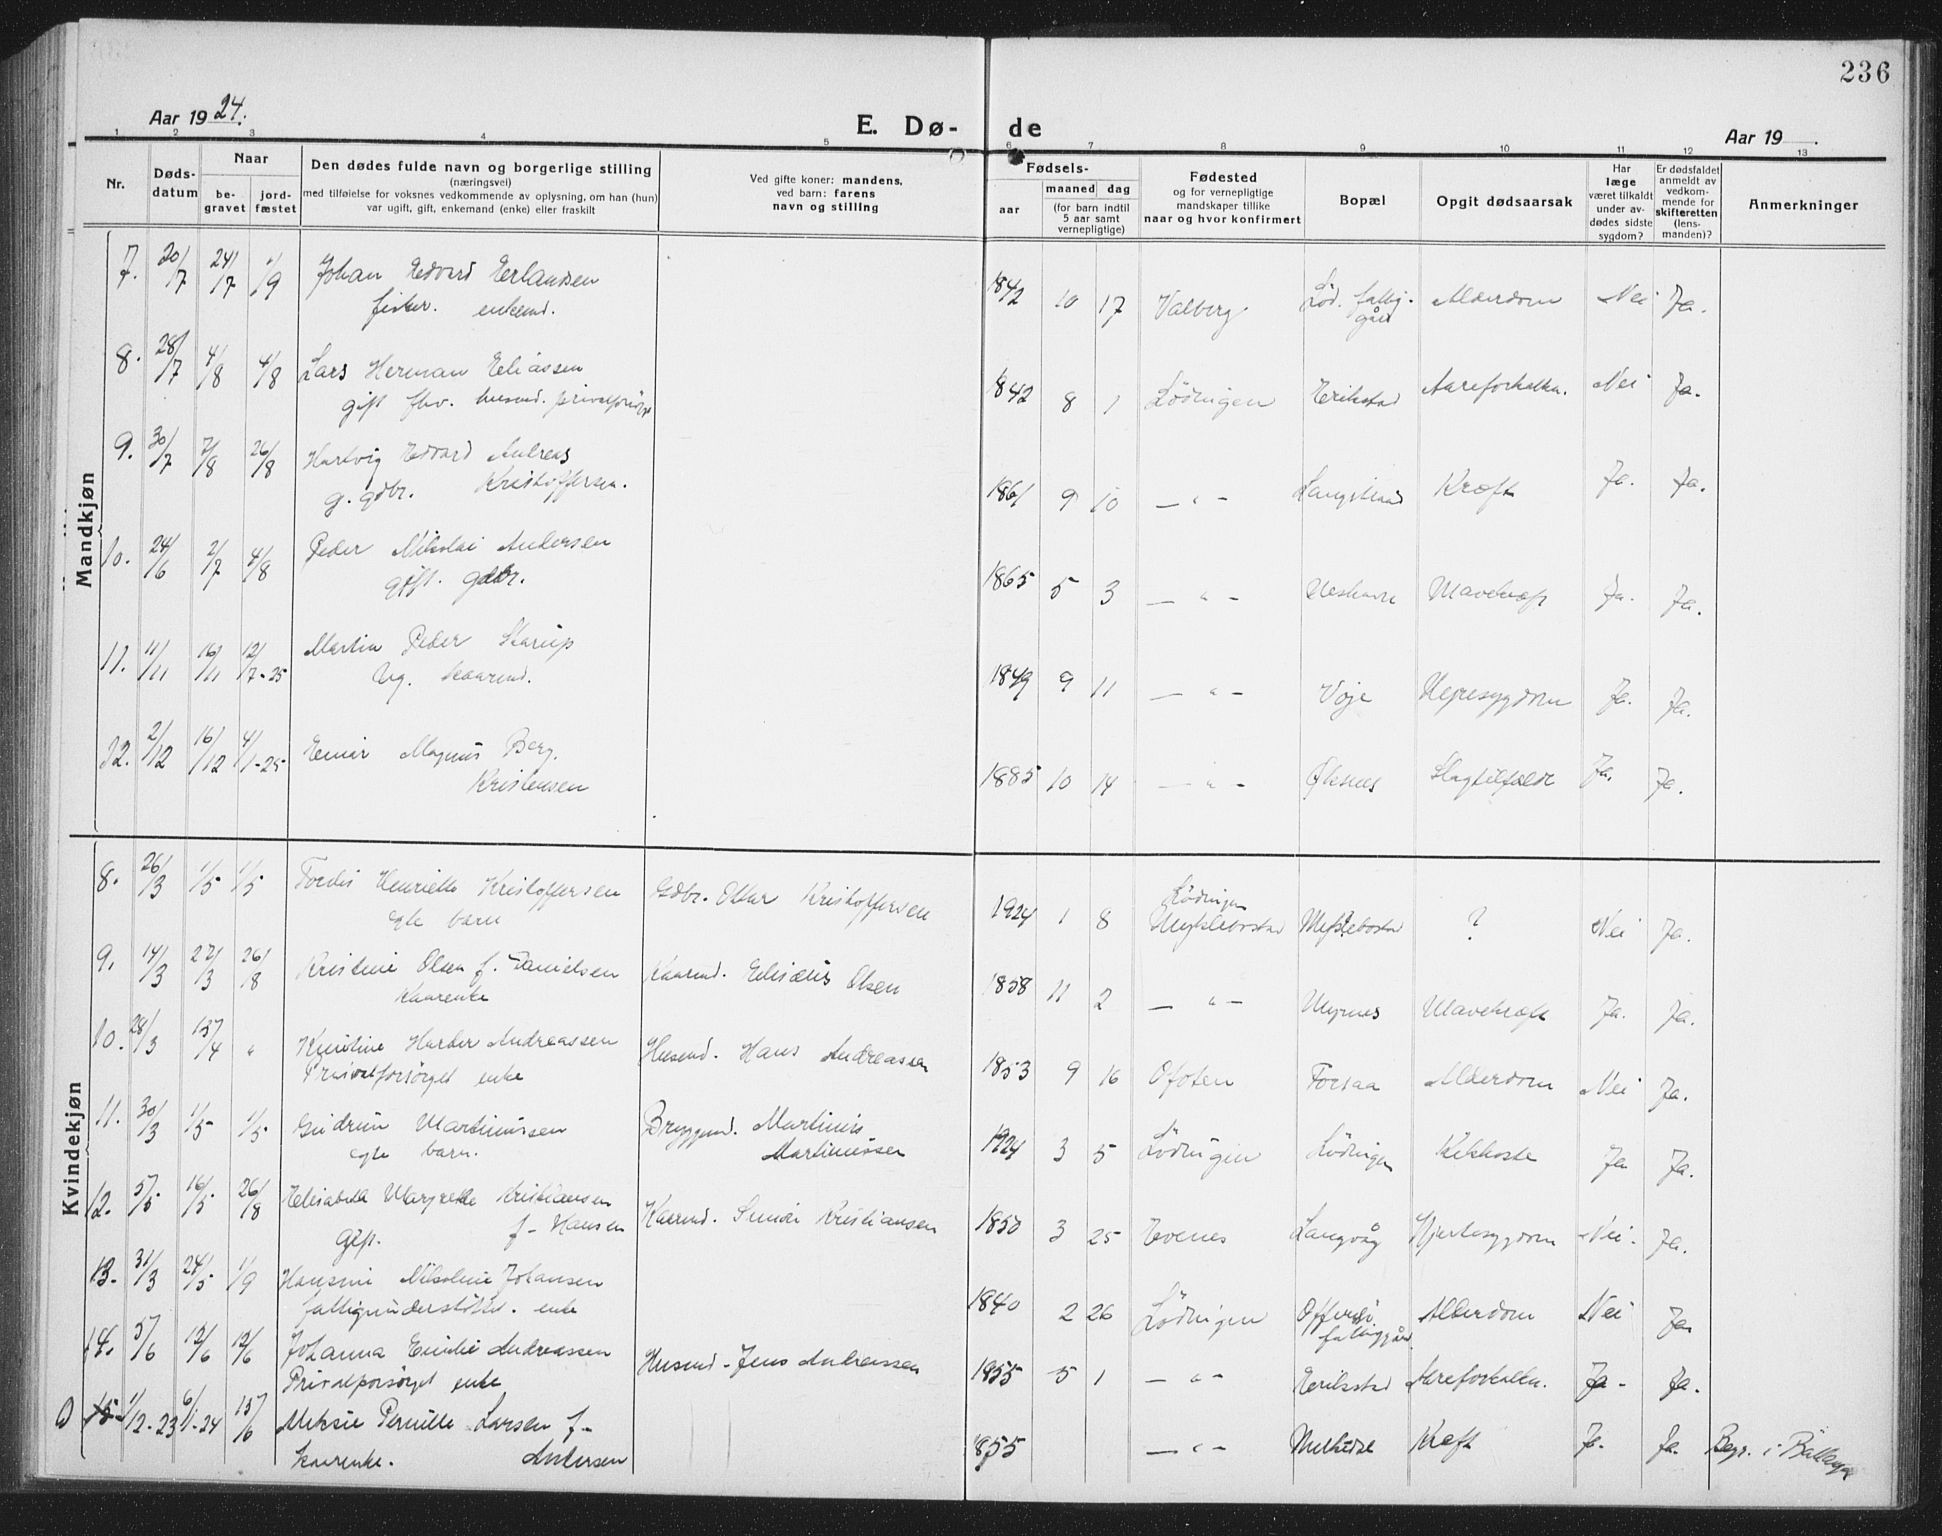 236
Aar 1924.
E. Dø- de
Aar 19 .
1 2 3 4 5 6 7 8 9 10 11 12 13
Nr.
Døds-
datum
Naar
be-
gravet
jord-
fæstet
Den dødes fulde navn og borgerlige stilling
(næringsvei)
med tilføielse for voksnes vedkommende av oplysning, om han (hun)
var ugift, gift, enkemand (enke) eller fraskilt
Ved gifte koner: mandens,
ved barn: farens
navn og stilling
Fødsels-
aar
maaned dag
(for barn indtil
5 aar samt
vernepligtige)
Fødested
og for vernepligtige
mandskaper tillike
naar og hvor konfirmert
Bopæl
Opgit dødsaarsak
Har
læge
været tilkaldt
under av-
dødes sidste
sygdom?
Er dødsfaldet
anmeldt av
vedkom-
mende for
skifteretten
(lens-
manden)?
Anmerkninger
Mandkjøn
7. 20/7 24/7 1/9 Johan Edvard Erlandsen 1842 10 17 Valberg Lød. fattig- Alderdom Nei Ja.
fisker. enkemd. gård
8. 28/7 4/8 4/8 Lars Herman Eliassen 1842 8 1 Lødingen Erikstad Aareforkalkn. Nei Ja.
gift fhv. husmd. privatforsørg
9. 30/7 7/8 26/8 Hartvig Edvard Andreas 1861 9 10 — " — Langstrand Kræft Ja. Ja.
g. gdbr. Kristoffersen.
10. 24/6 2/7 4/8 Peder Nikolai Andersen 1865 5 3 — " — Neshavn Mavekræft Ja. Ja.
gift. gdbr.
11. 11/11 16/11 12/7-25 Martin Peder Skarup 1849 9 11 — " — Voje Nyresygdom Ja. Ja.
Ug. kaarmd.
12. 2/12 16/12 4/1-25 Einar Magnus Berg. 1885 10 14 — " — Øksnes Slagtilfælde Ja. Ja.
Kristensen
Kvindekjøn
8. 26/3 1/5 1/5 Tordis Henriette Kristoffersen Gdbr. Ottar Kristoffersen 1924 1 8 Lødingen Myklebostad Myklebostad ? Nei Ja.
egte barn
9. 14/3 22/3 26/8 Kristine Olsen f. Danielsen Kaarmd. Elisæus Olsen 1858 11 2 — " — Myrnes Mavekræft Ja. Ja.
Kaarenke
10. 28/3 15/4 " Kristine Harber Andreassen Husmd. Hans Andreassen 1853 9 16 Ofoten Forsaa Alderdom Nei Ja.
Privatforsørget enke
11. 30/3 1/5 1/5 Gudrun Martinussen Bryggmd. Martinus 1924 3 5 Lødingen Lødingen Kikhoste Ja Ja.
egte barn. Martinussen
12. 5/5 16/5 26/8 Elisabeth Margrethe Kristiansen Kaarmd. Simon Kristiansen 1850 3 25 Evenes Langvåg Hjertesygdom Nei. Ja.
gift. f. Hansen
13. 31/3 24/5 1/9 Hansine Nikoline Johansen 1840 2 26 Lødingen Offersøi Alderdom Nei Ja
fattigunderstøttet. enke fattiggård
14. 5/6 12/6 12/6 Johanna Emilie Andreassen Husmd. Jens Andreassen 1855 5 1 — " — Erikstad Aareforkalkn. Ja. Ja.
Privatforsørget enke
0 15 1/12-23 6/1-24 15/6 Pernille Larsen f. 1855 — " — Kræft Ja. Ja. Begr. i Ballangen
Kaarenke. Andersen